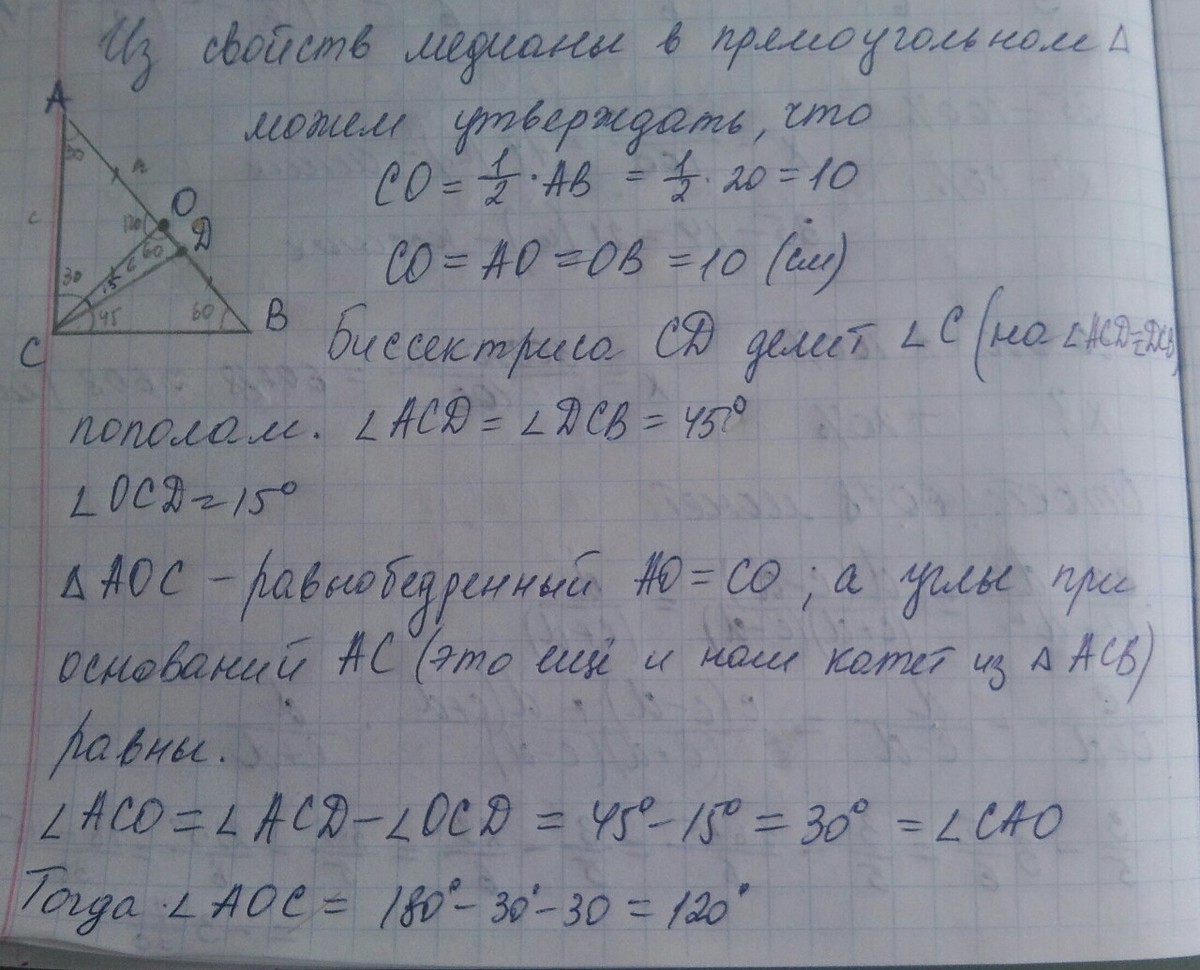 Из свойств медианы в прямоугольном Δ
можем утверждать, что
CO = 1/2 · AB = 1/2 · 20 = 10
CO = AO = OB = 10 (см)
A
30
O
120
60
D
30
15
45
60
B
C
Биссектриса CD делит ∠C (на ∠ACD=DCB)
пополам. ∠ACD = ∠DCB = 45°
∠OCD = 15°
Δ AOC – равнобедренный AO = CO ; а углы при
оснований AC (это ещё и нам катет из Δ ACB)
равны.
∠ACO = ∠ACD – ∠OCD = 45° – 15° = 30° = ∠CAO
Тогда ∠AOC = 180° – 30° – 30 = 120°